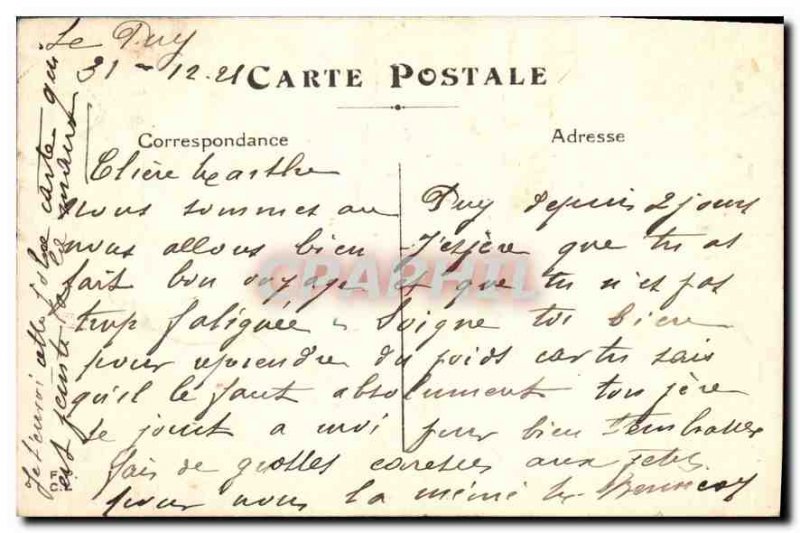 Le Puy
31 - 12. 21
CARTE POSTALE
Correspondance
Adresse
Chère Marthe
nous sommes au Puy depuis 2 jours
nous allons bien - J'espère que tu as
fait bon voyage et que tu n'es pas
trop fatiguée - Soigne toi bien
pour reprendre du poids car tu sais
qu'il le faut absolument ton père
se joint a moi pour bien t'embrasser
fais de grosses caresses aux
pour nous la même
Je t'envoi cette jolie carte qui
est peinte à la main
CPAPHIL